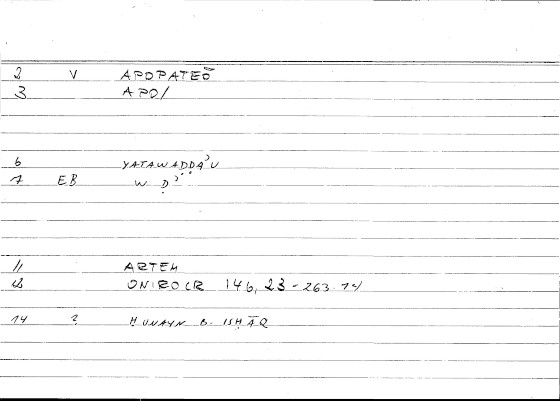 2 V APOPATEŌ
3 APO/
6 YATAWAḌḌAʾU
7 EB W Ḍ ʾ
11 ARTEM
12 ONIROCR 146, 23 - 263.14
14 2 ḤUNAYN B. ISḤĀQ